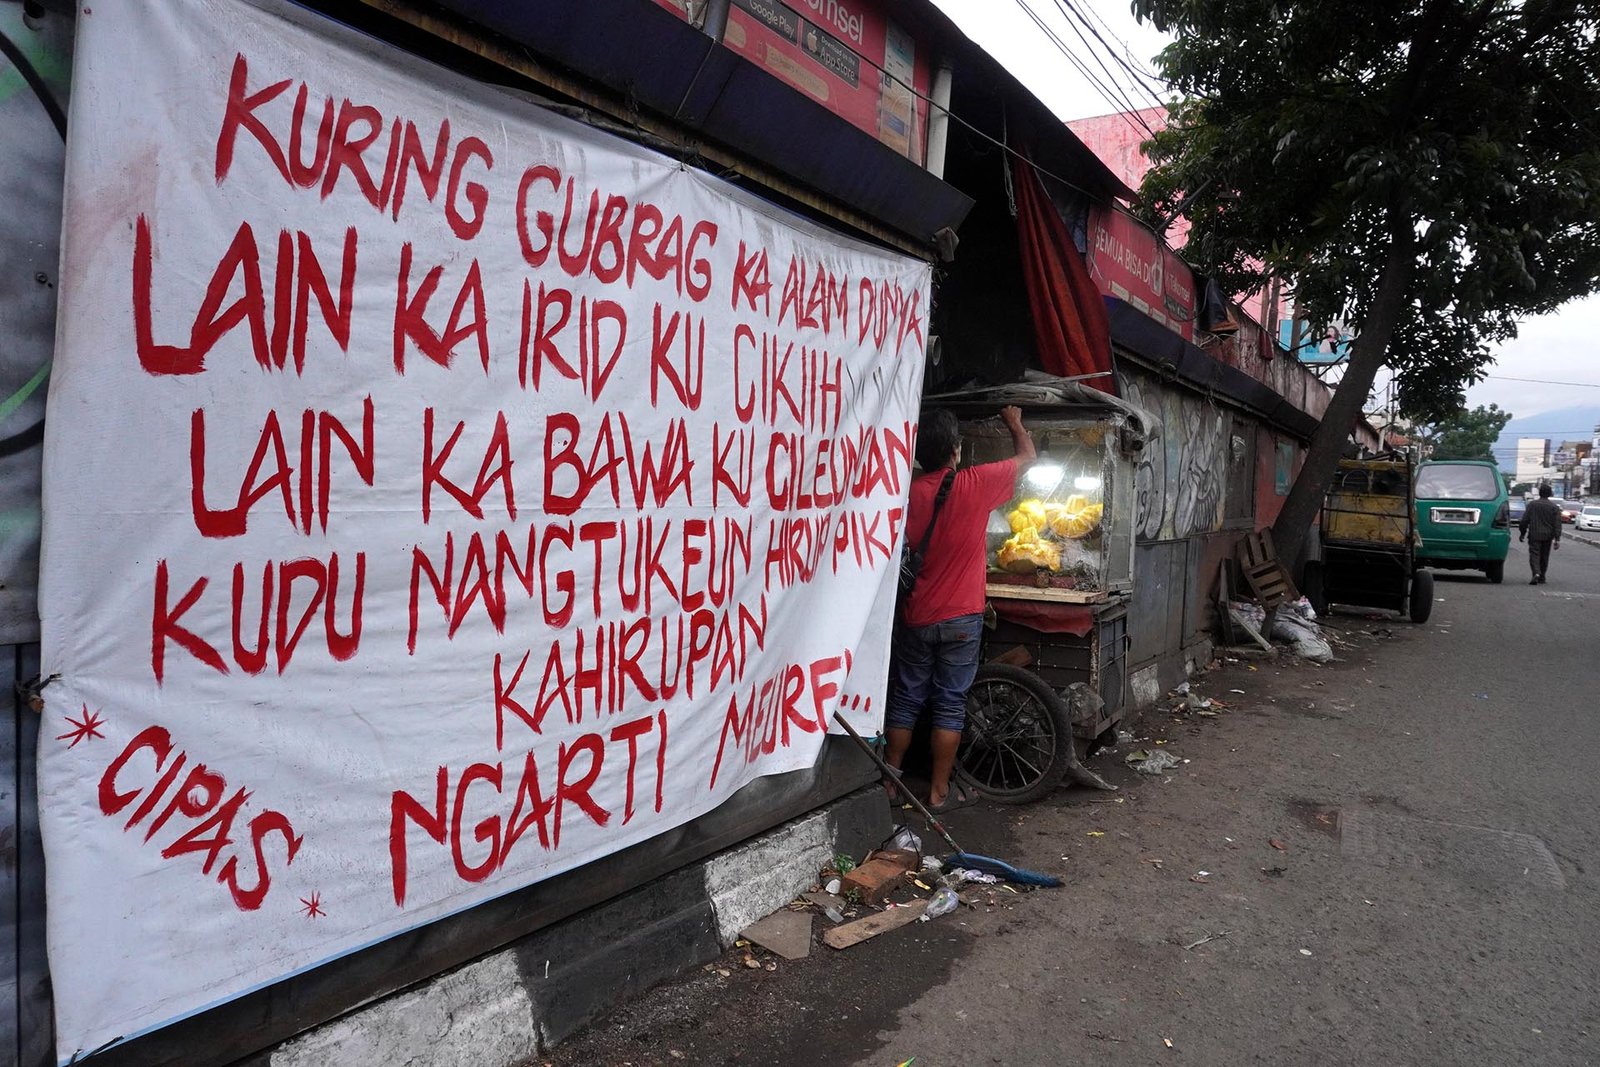 KURING GUBRAG KA ALAM DUNYA
LAIN KA IRID KU CIKIIH
LAIN KA BAWA KU CILEUNCANG
KUDU NANGTUKEUN HIRUP PIKEUN
KAHIRUPAN
NGARTI MEUREUN...
*CIPAS*
Google Play
Download on the
App Store
SEMUA BISA DI
Telkomsel